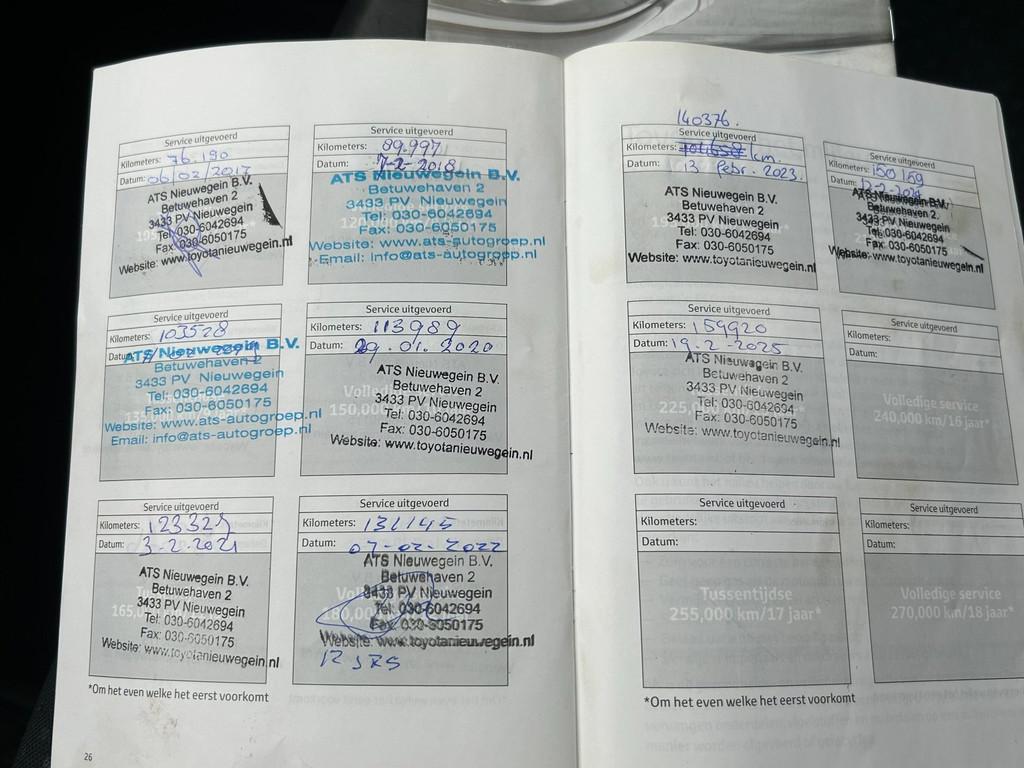 Service uitgevoerd
Kilometers: 76.190
Datum: 06/02/2017
ATS Nieuwegein B.V.
Betuwehaven 2
3433 PV Nieuwegein
Tel: 030-6042694
Fax: 030-6050175
Website: www.toyotanieuwegein.nl
Service uitgevoerd
Kilometers: 89.997
Datum: 7-2-2018
ATS Nieuwegein B.V.
Betuwehaven 2
3433 PV Nieuwegein
Tel: 030-6042694
Fax: 030-6050175
Website: www.ats-autogroep.nl
Email: info@ats-autogroep.nl
Service uitgevoerd
Kilometers: 103528
Datum:
ATS Nieuwegein B.V.
Betuwehaven 2
3433 PV Nieuwegein
Tel: 030-6042694
Fax: 030-6050175
Website: www.ats-autogroep.nl
Email: info@ats-autogroep.nl
Service uitgevoerd
Kilometers: 113989
Datum: 29.01.2020
Volledige
150,000
ATS Nieuwegein B.V.
Betuwehaven 2
3433 PV Nieuwegein
Tel: 030-6042694
Fax: 030-6050175
Website: www.toyotanieuwegein.nl
Service uitgevoerd
Kilometers: 123325
Datum: 3-2-2021
165,
ATS Nieuwegein B.V.
Betuwehaven 2
3433 PV Nieuwegein
Tel: 030-6042694
Fax: 030-6050175
Website: www.toyotanieuwegein.nl
Service uitgevoerd
Kilometers: 131145
Datum: 07-02-2022
180,000
ATS Nieuwegein B.V.
Betuwehaven 2
3433 PV Nieuwegein
Tel: 030-6042694
Fax: 030-6050175
Website: www.toyotanieuwegein.nl
*Om het even welke het eerst voorkomt
26
140376.
Service uitgevoerd
Kilometers: km.
Datum: 13 Febr. 2023.
ATS Nieuwegein B.V.
Betuwehaven 2
3433 PV Nieuwegein
Tel: 030-6042694
Fax: 030-6050175
Website: www.toyotanieuwegein.nl
Service uitgevoerd
Kilometers: 150169
Datum: 12-2-2024
ATS Nieuwegein B.V.
Betuwehaven 2
3433 PV Nieuwegein
Tel: 030-6042694
Fax: 030-6050175
Website: www.toyotanieuwegein.nl
Service uitgevoerd
Kilometers: 159920
Datum: 19-2-2025
225,
ATS Nieuwegein B.V.
Betuwehaven 2
3433 PV Nieuwegein
Tel: 030-6042694
Fax: 030-6050175
Website: www.toyotanieuwegein.nl
Service uitgevoerd
Kilometers:
Datum:
Volledige service
240,000 km/16 jaar*
Service uitgevoerd
Kilometers:
Datum:
Tussentijdse
255,000 km/17 jaar*
Service uitgevoerd
Kilometers:
Datum:
Volledige service
270,000 km/18 jaar*
*Om het even welke het eerst voorkomt